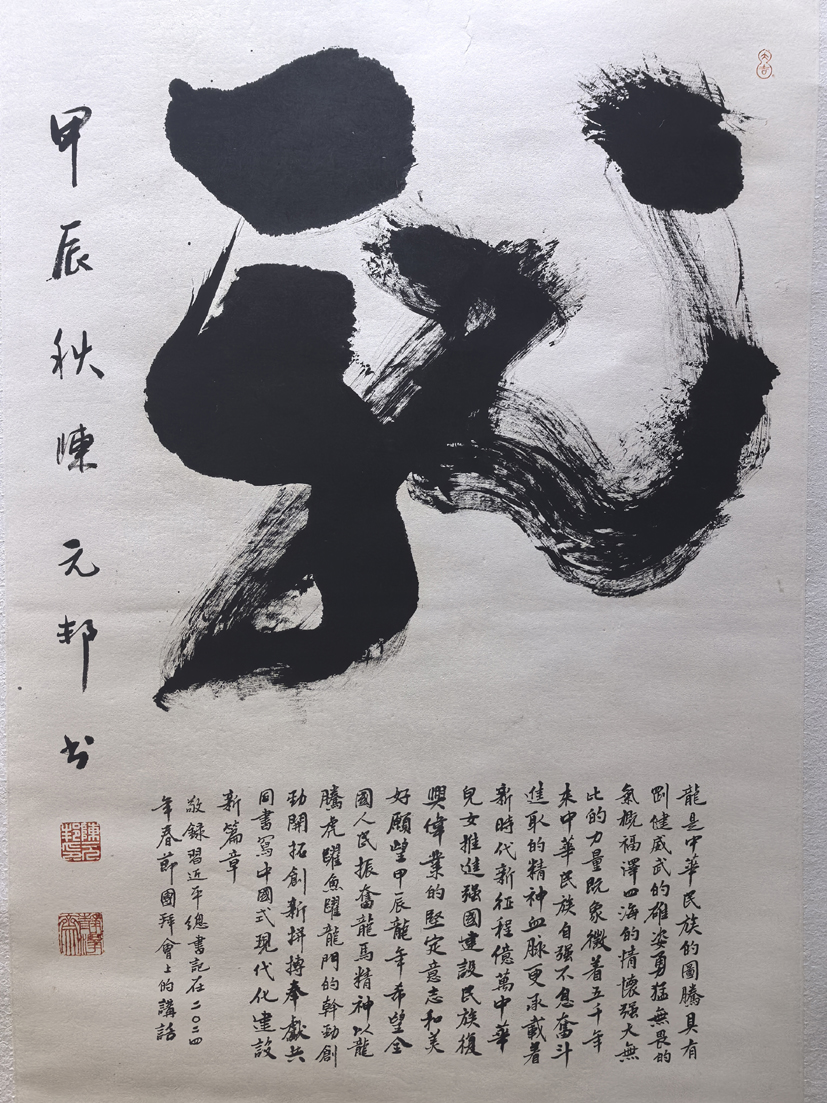 大吉
龍
龍是中華民族的圖騰具有
剛健威武的雄姿勇猛無畏的
氣概福澤四海的情懷强大無
比的力量既象徵着五千年
来中華民族自强不息奮斗
進取的精神血脉更承載着
新時代新征程億萬中華
兒女推進强國建設民族復
興偉業的堅定意志和美
好願望甲辰龍年希望全
國人民振奮龍馬精神以龍
騰虎躍魚躍龍門的幹勁創
勁開拓創新拼搏奉獻共
同書寫中國式現代化建設
新篇章
敬録習近平總書記在二〇二四
年春節團拜會上的講話
甲辰秋陳元邦书
陳元邦印